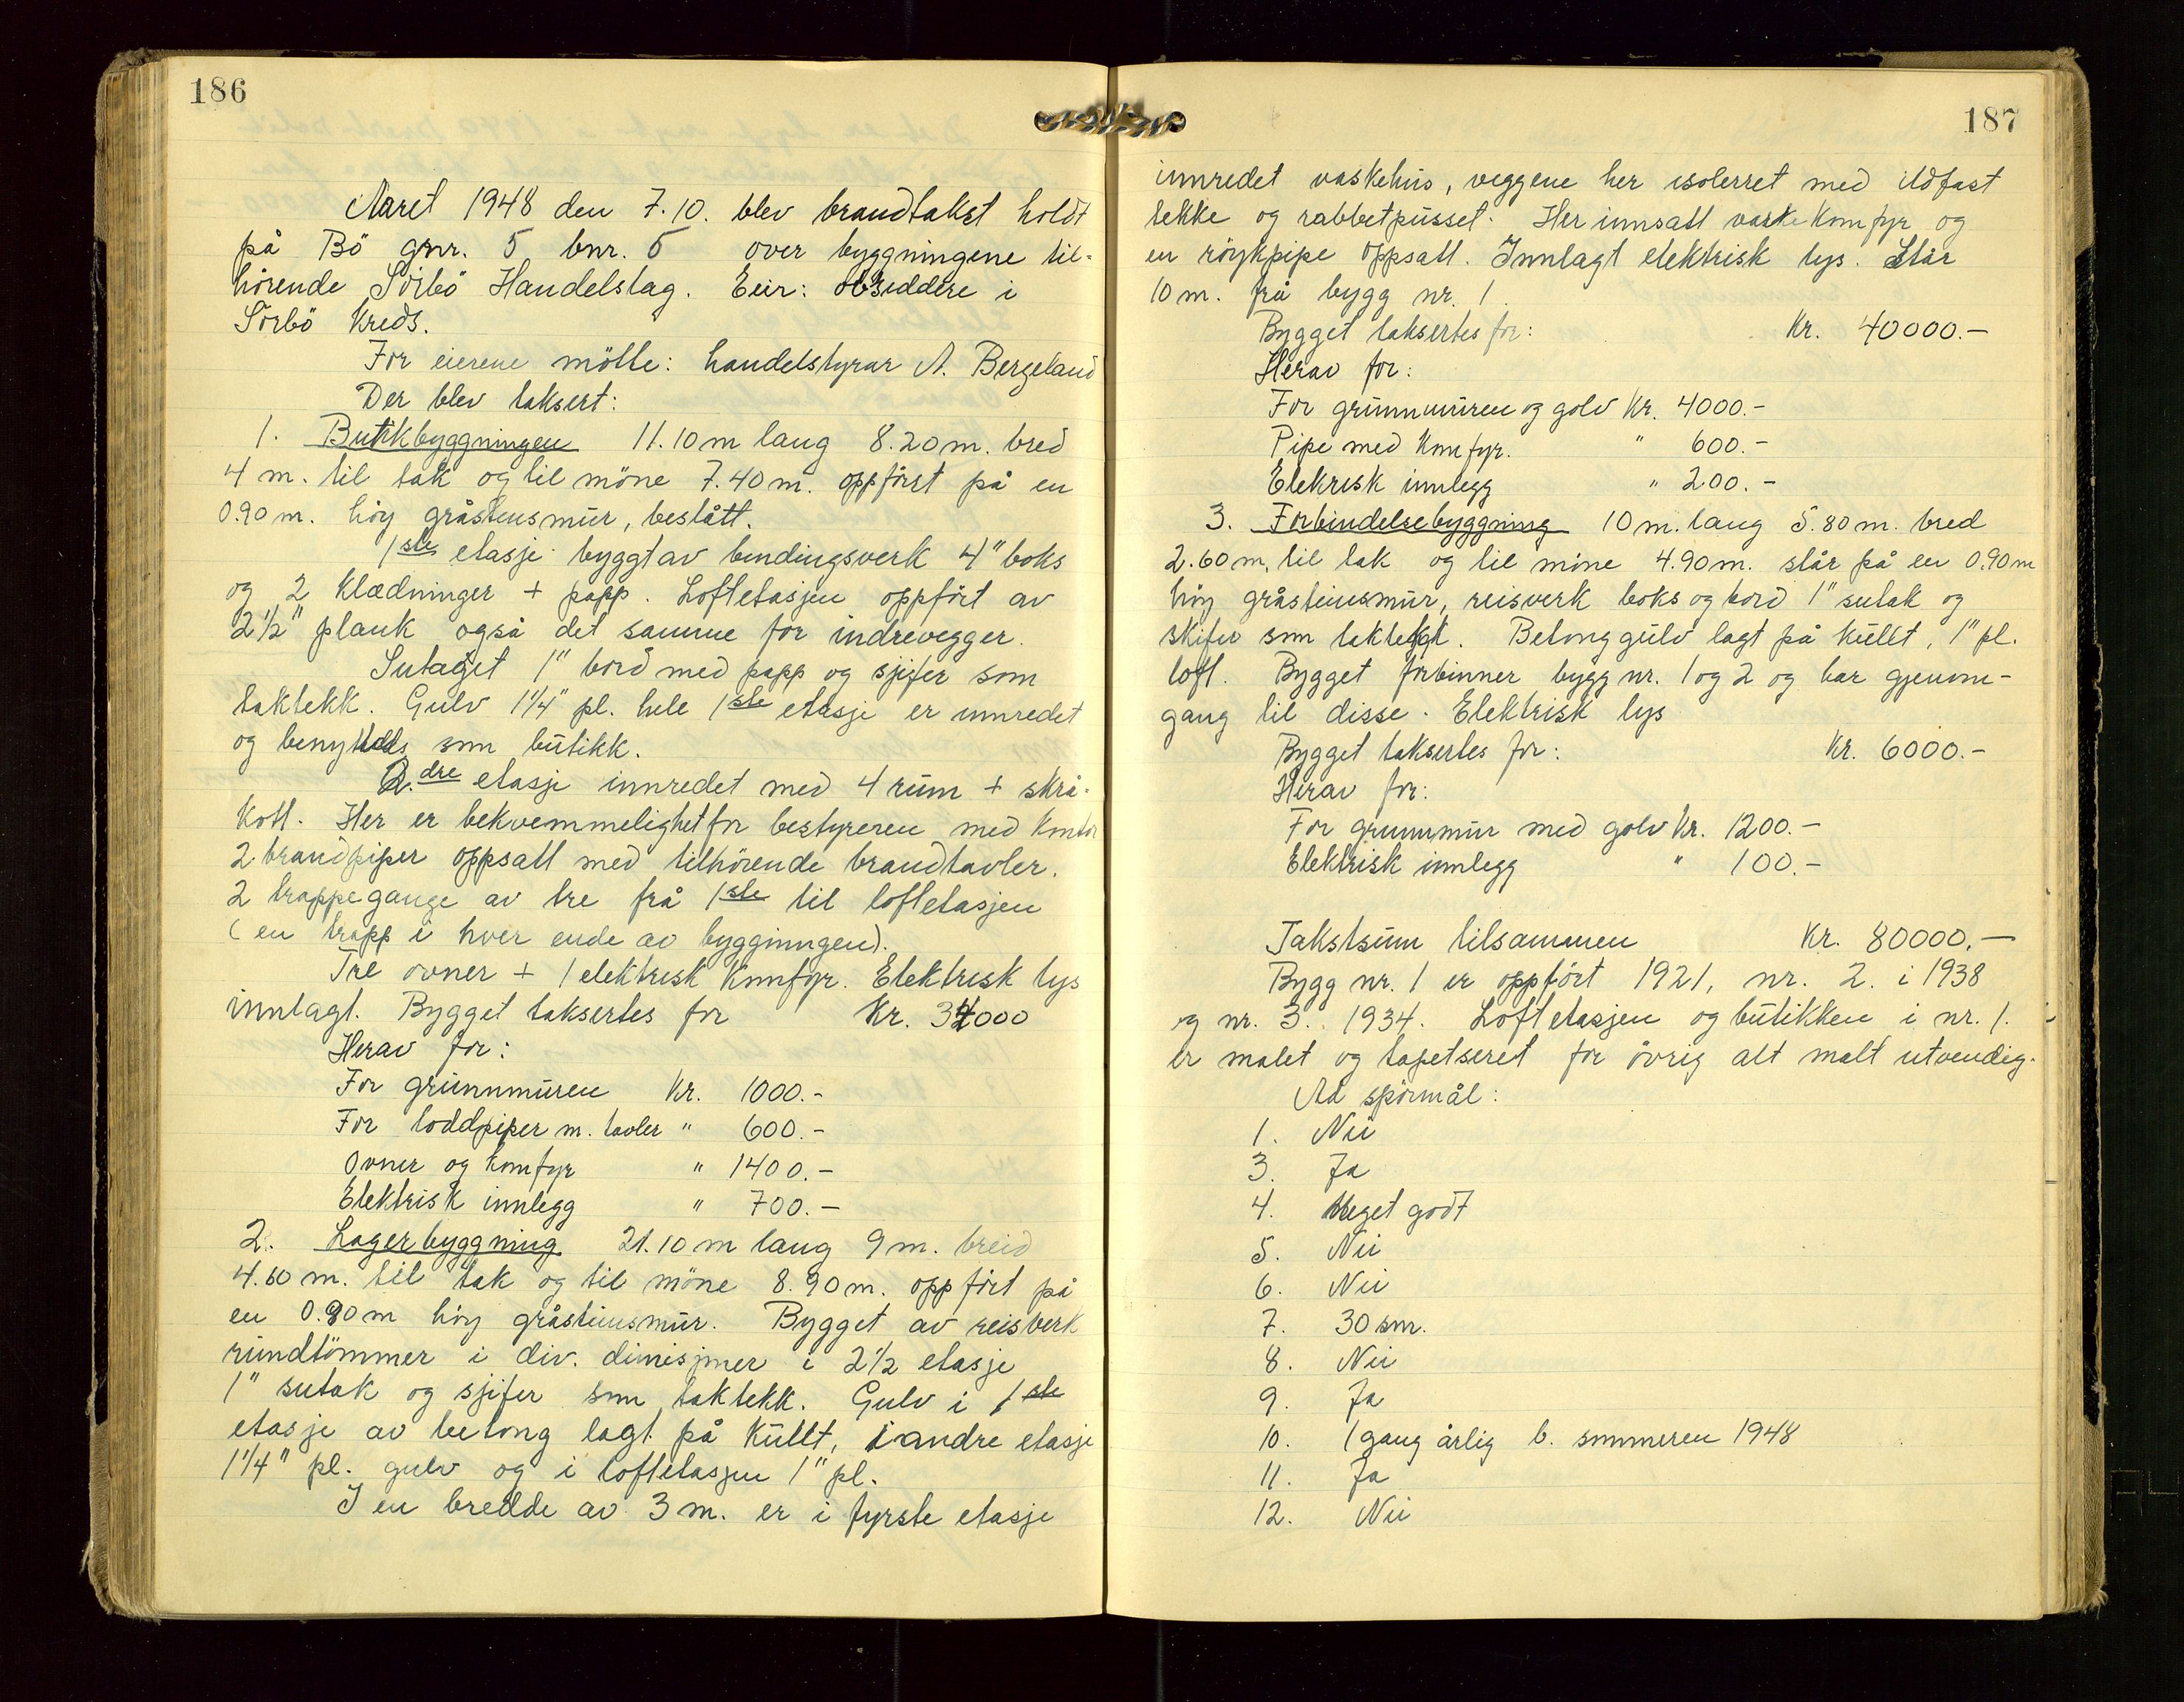 186
Aaret 1948 den 7.10. blev brandtakst holdt
på Bö gnr. 5 bnr. 5 over byggningene til-
hörende Sörbö Handelslag. Eier: obsiddere i
Sörbö Kreds.
For eierene mötte: handelstyrar A. Bergeland
Der blev taksert:
1. Butikbyggningen 11.10 m lang 8.20 m. bred
4 m. til tak og til möne 7.40 m. oppfört på en
0.90 m. höy gråstensmur, beslått.
1ste etasje byggt av bendingsverk 4" boks
og 2 klædninger + papp. Loftetasjen oppfört av
2½" plank også det samme for indrevegger.
Sutaget 1" bord med papp og sjifer som
taktekk. Gulv 1¼" pl. hele 1ste etasje er innredet
og benyttes som butikk.
2.dre etasje innredet med 4 rum + skrå-
kott. Her er bekvemmelighet for bestyreren med kontor
2 brandpiper oppsatt med tilhörende brandtavler.
2 trappegange av tre frå 1ste til loftetasjen
(en trapp i hver ende av bygginngen).
Tre ovner + 1 elektrisk komfyr. Elektrisk lys
innlagt. Bygget taksertes for Kr. 34000
Herav for:
For grunnmuren Kr. 1000.-
For loddpiper m. tavler " 600.-
Ovner og komfyr " 1400.-
Elektrisk innlegg " 700.-
2. Lagerbyggning 21.10 m lang 9 m. breid
4.60 m. til tak og til möne 8.90 m. oppfört på
en 0.90 m höy gråsteinsmur. Bygget av reisverk
rundtömmer i div. dimisjoner i 2½ etasje
1" sutak og sjifer som taktekk. Gulv i 1ste
etasje av betong lagt på kullt, i andre etasje
1¼" pl. gulv og i loftetasjen 1" pl.
I en bredde av 3 m. er i fyrste etasje
187
innredet vaskehus, veggene her isolerret med ildfast
tekke og rabbetpusset. Her innsatt vaske komfyr og
en röykpipe oppsatt. Innlagt elektrisk lys. Står
10 m. frå bygg nr. 1.
Bygget taksertes for: Kr. 40000.-
Herav for:
For grunnmuren og golv Kr. 4000.-
Pipe med komfyr. " 600.-
Elekrisk innlegg " 200.-
3. Forbindelsebyggning 10 m. lang 5.80 m. bred
2.60 m. til tak og til möne 4.90 m. står på en 0.90 m
höy gråsteinsmur, reisverk boks og bord 1" sutak og
skifer som taktekk. Betonggulv lagt på kullt, 1" pl.
loft. Bygget forbinner bygg nr. 1 og 2 og har gjenom-
gang til disse. Elektrisk lys
Bygget taksertes for: Kr. 6000.-
Herav for:
For grunnmur med golv Kr. 1200.-
Elektrisk innlegg " 100.-
Takstsum tilsammen Kr. 80000.-
Bygg nr. 1 er oppfört 1921, nr. 2. i 1938
og nr. 3. 1934. Loftetasjen og butikken i nr. 1.
er malet og tapetseret for övrig alt malt utvendig.
Ad spörmål:
1. Nei
3. Ja
4. Meget godt
5. Nei
6. Nei
7. 30 sm.
8. Nei
9. Ja
10. 1 gang årlig b. sommeren 1948
11. Ja
12. Nei